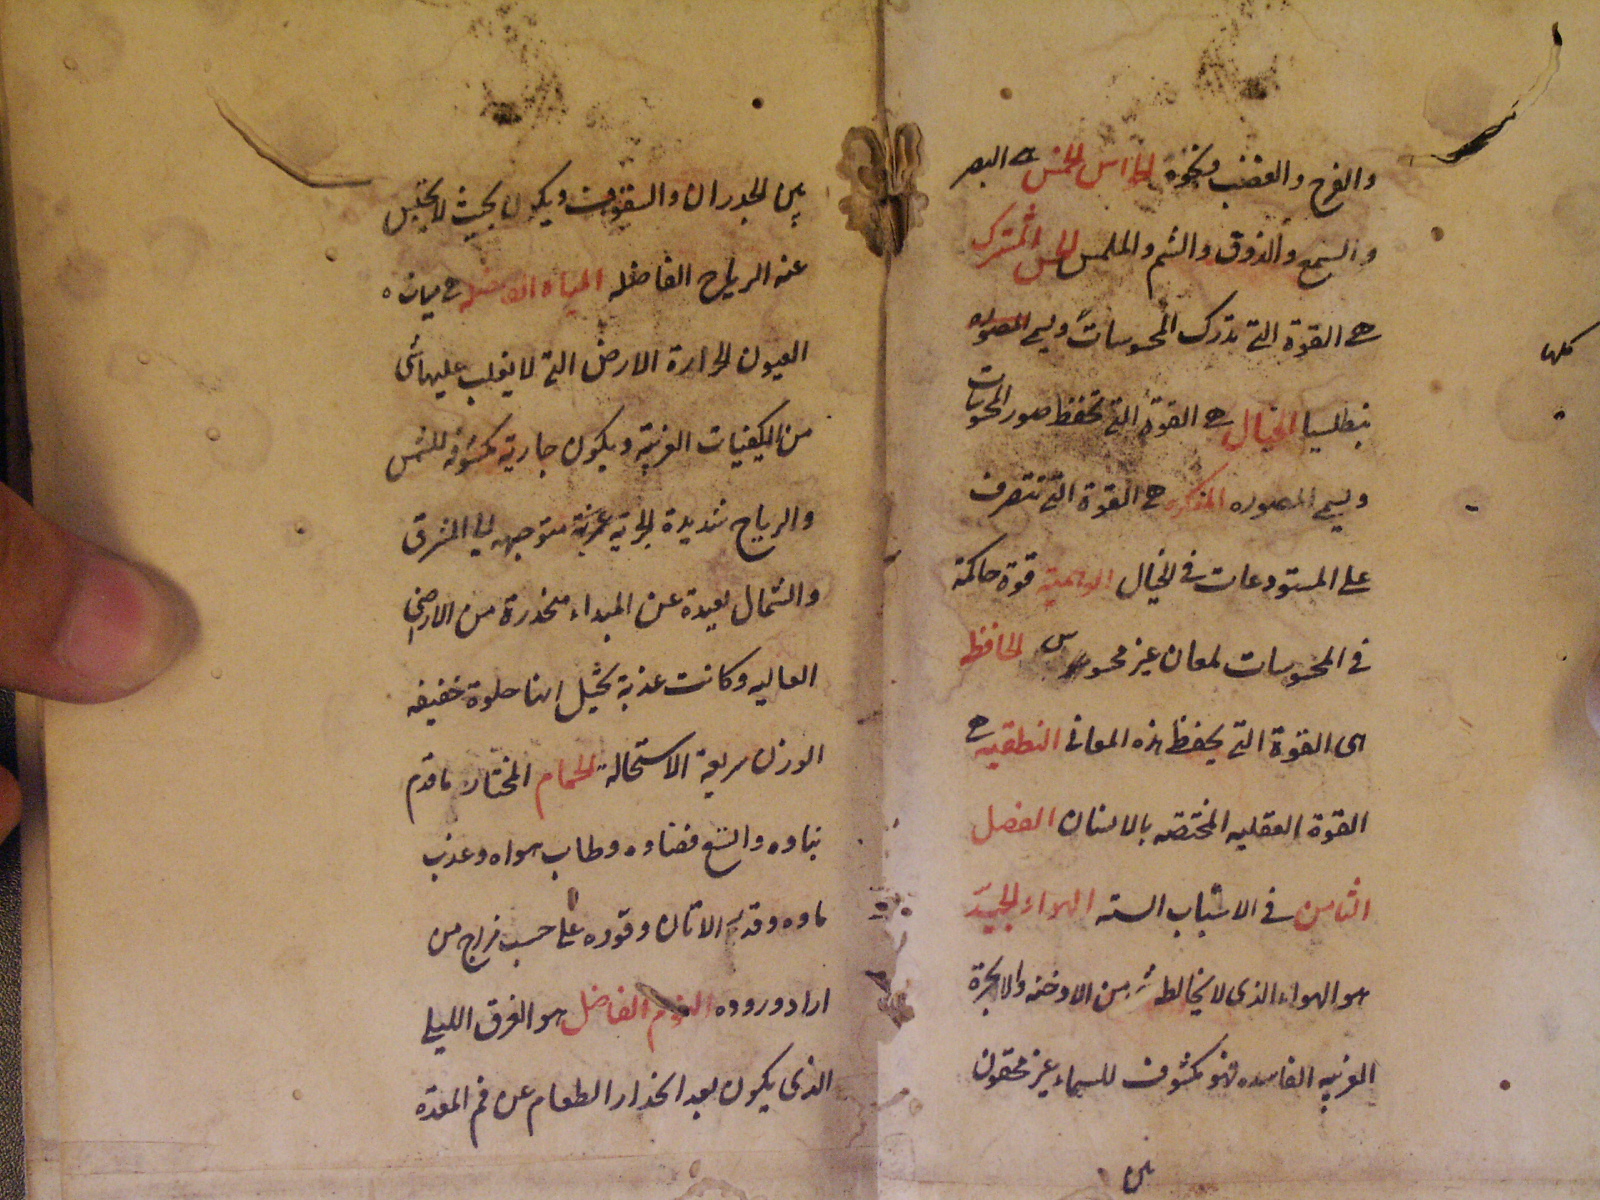 والفرح والغضب ونحوه الحواس الخمس هي البصر
والسمع والذوق والشم والملمس الحس المشترك
هي القوة التي تدرك المحسوسات ويسمى
بنطاسيا الخيال هي القوة التي تحفظ صور المحسوسات
ويسمى المصوره المفكره هي القوة التي تتصرف
على المستودعات في الخيال الوهمية قوة حاكمة
في المحسوسات لمعان غير محسوس الحافظه
هي القوة التي يحفظ هذه المعاني النطقيه هي
القوة العقليه المختصه بالانسان الفصل
الثامن في الاسباب السته الهواء الجيد
هو الهواء الذي لا يخالطه شيء من الادخنه والابخرة
الغريبه الفاسده فهو مكشوف للسماء غير محقون
بين
كلها
بين الجدران والسقوف ويكون بحيث لا يحتبس
عنه الرياح الفاضله المياه الفاضله هي مياه
العيون الحرارة الارض التي لا يغلب عليها شي
من الكيفيات الغريبة ويكون جارية مكشوفه للشمس
والرياح شديدة الجرية متوجهه الي المشرق
والشمال بعيدة عن المبداء منحدرة من الاراضي
العاليه وكانت عذبة يخيل انها حلوة خفيفه
الوزن سريعة الاستحالة الحمام المختار ما قدم
بناوه واتسع فضاوه وطاب هواه وعذب
ماوه وقدر الاتان وقوده على حسب مزاج من
اراد وروده النوم الفاضل هو الغرق الليلي
الذي يكون بعد انحدار الطعام عن فم المعده